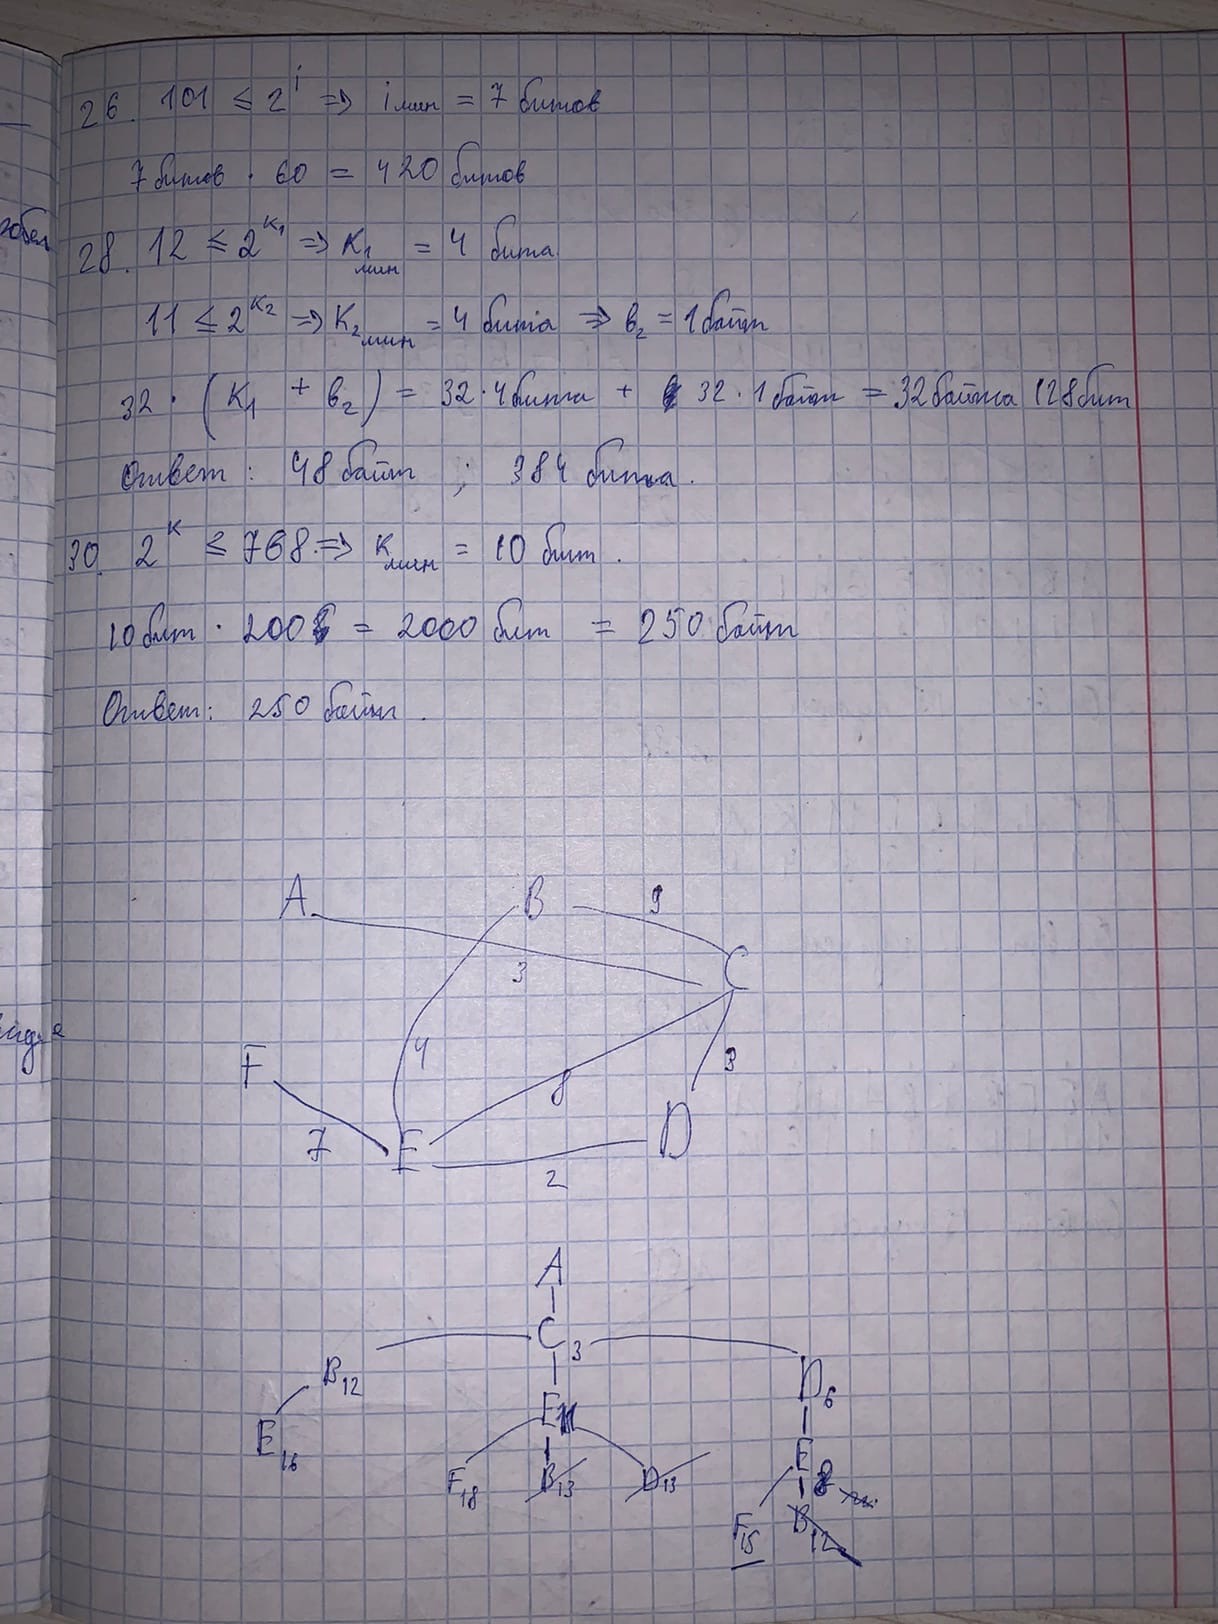 26. 101 ≤ 2^i ⇒ i мин = 7 битов
7 битов · 60 = 420 битов
28. 12 ≤ 2^K₁ ⇒ K₁ мин = 4 бита
11 ≤ 2^K₂ ⇒ K₂ мин = 4 бита ⇒ b₂ = 1 байт
32 · (K₁ + b₂) = 32 · 4 бита + 32 · 1 байт = 32 байта 128 бит
Ответ: 48 байт ; 384 бита.
30. 2^K ≤ 768 ⇒ K мин = 10 бит.
10 бит · 200 = 2000 бит = 250 байт
Ответ: 250 байт.
A B 9
C
3
4
F 3
8
7 E D
2
A
C₃
B₁₂ D₆
E₁₁
E₁₆ E₈
F₁₈ B₁₃ D₁₃
F₁₅ B₁₂